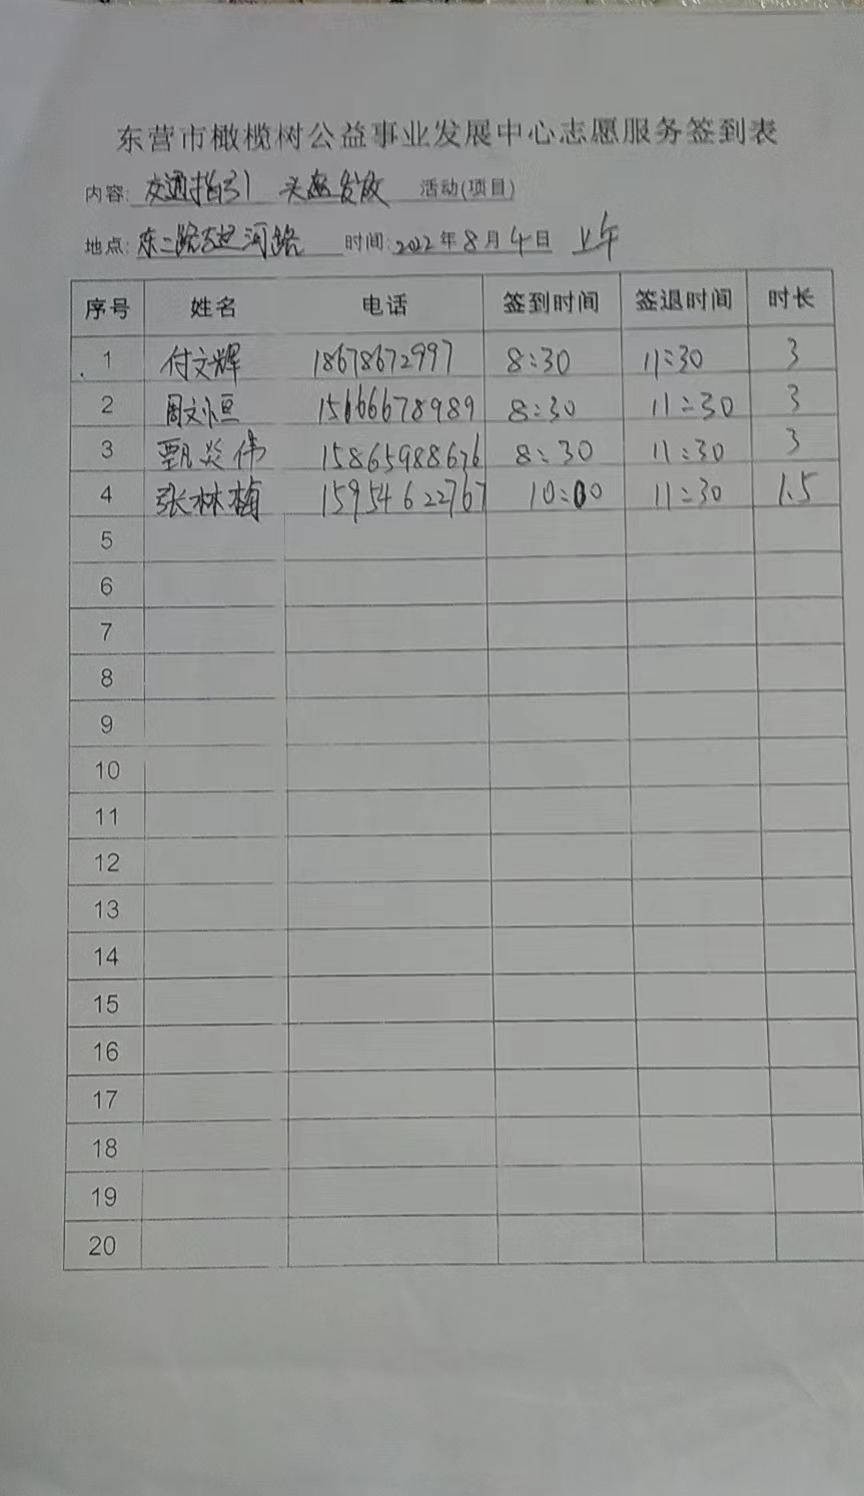 东营市橄榄树公益事业发展中心志愿服务签到表
内容: 交通指引 头盔发放 活动(项目)
地点: 东二路 河路 时间: 2022年8月4日 上午
序号 姓名 电话 签到时间 签退时间 时长
1 付文辉 18678672997 8:30 11:30 3
2 周文恒 15666678989 8:30 11:30 3
3 甄炎伟 15865988676 8:30 11:30 3
4 张林梅 15954622767 10:00 11:30 1.5
5
6
7
8
9
10
11
12
13
14
15
16
17
18
19
20